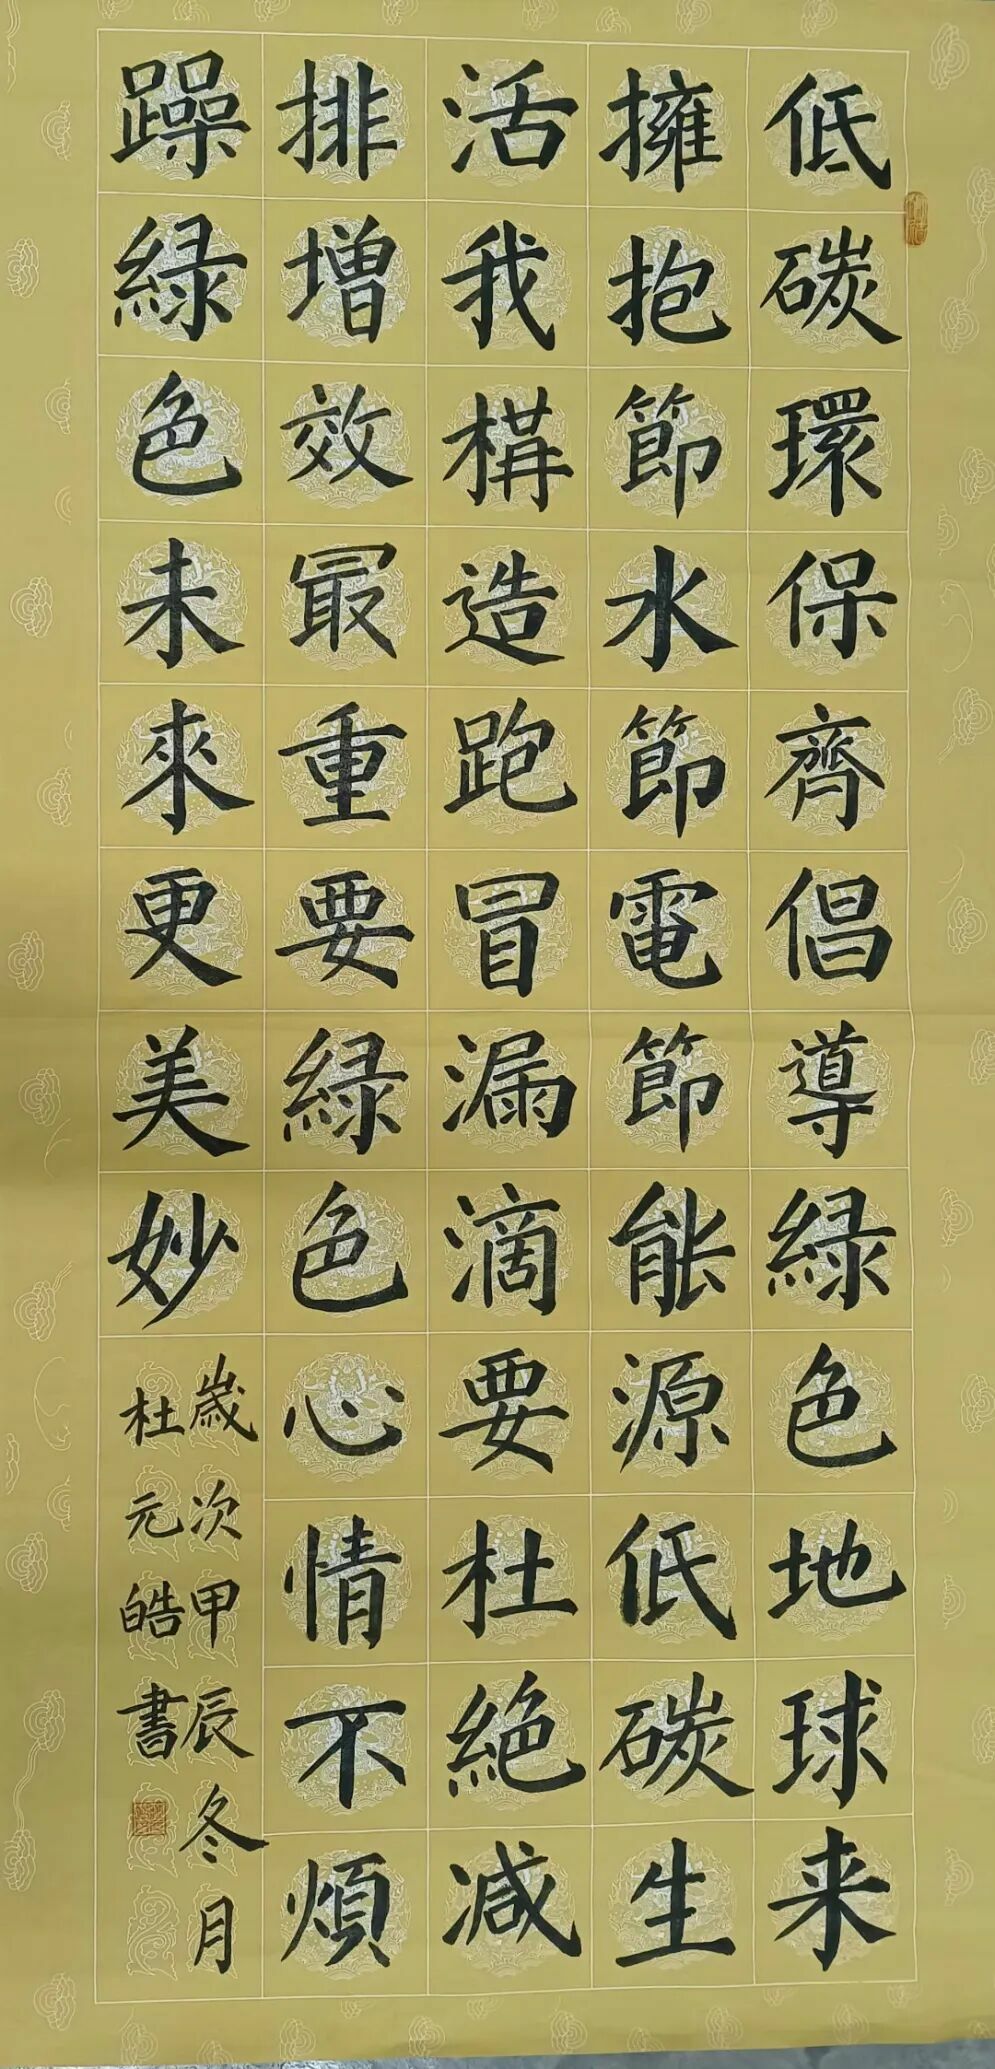 低碳環保齊倡導緑色地球来
擁抱節水節電節能源低碳生
活我構造跑冒漏滴要杜絶減
排增效最重要緑色心情不煩
躁緑色未來更美妙
歲次甲辰冬月
杜元皓書